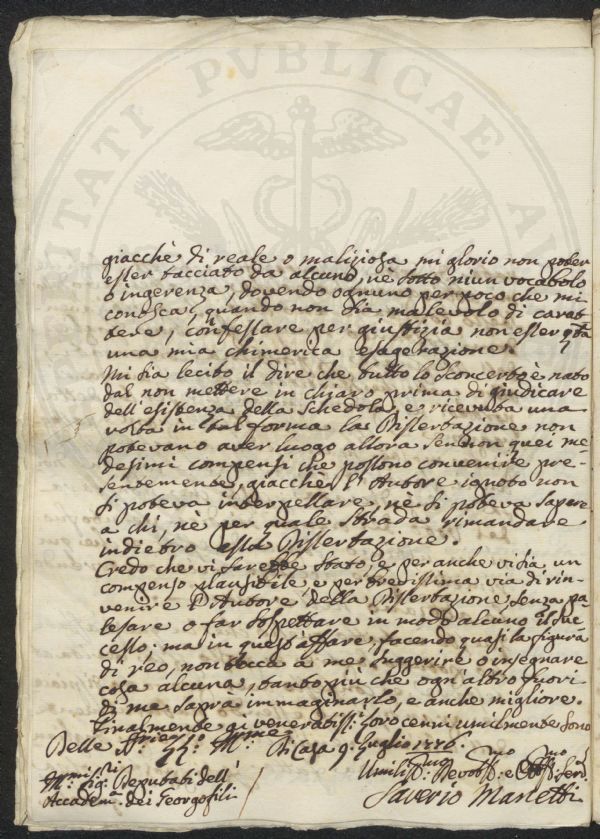 PUBLICAE
giacchè di reale o maliziosa mi glorio non poter
esser tacciato da alcuno, nè sotto niun vocabolo
o ingerenza, dovendo ognuno per poco che mi
conosca, quando non sia malevolo di carat=
tere, confessare per giustizia non esser qta
una mia chimerica esagerazione.
Mi sia lecito il dire che tutto lo sconcerto è nato
dal non mettere in chiaro prima di giudicare
dell'esistenza della Schedola, e ricevuta una
volta in tal forma la Dissertazione non
potevano aver luogo allora se non quei me=
desimi compensi che possono convenire pre=
sentemente, giacchè l'Autore ignoto non
si poteva interpellare, nè si poteva sapere
a chi, nè per quale strada rimandare
indietro essa Dissertazione.
Credo che vi sarebbe stato, e per anche vi sia un
compenso plausibile, e per brevissima via di rin=
venire l'Autore della Dissertazione senza pa=
lesare o far sospettare in modo alcuno il suc=
cesso: ma in quest'affare, facendo quasi la figura
di reo, non tocca a me suggerire o insegnare
cosa alcuna, tanto più che ogni altro fuori
di me saprà immaginarlo, e anche migliore.
Finalmente ai veneratiss: loro cenni umilmente sono
Delle
Di Casa 9. Luglio 1776.
Sig: Deputati dell'
Accadem: dei Georgofili
Umiliss: Devotiss:mo e Obb:mo Ser:
Saverio Manetti